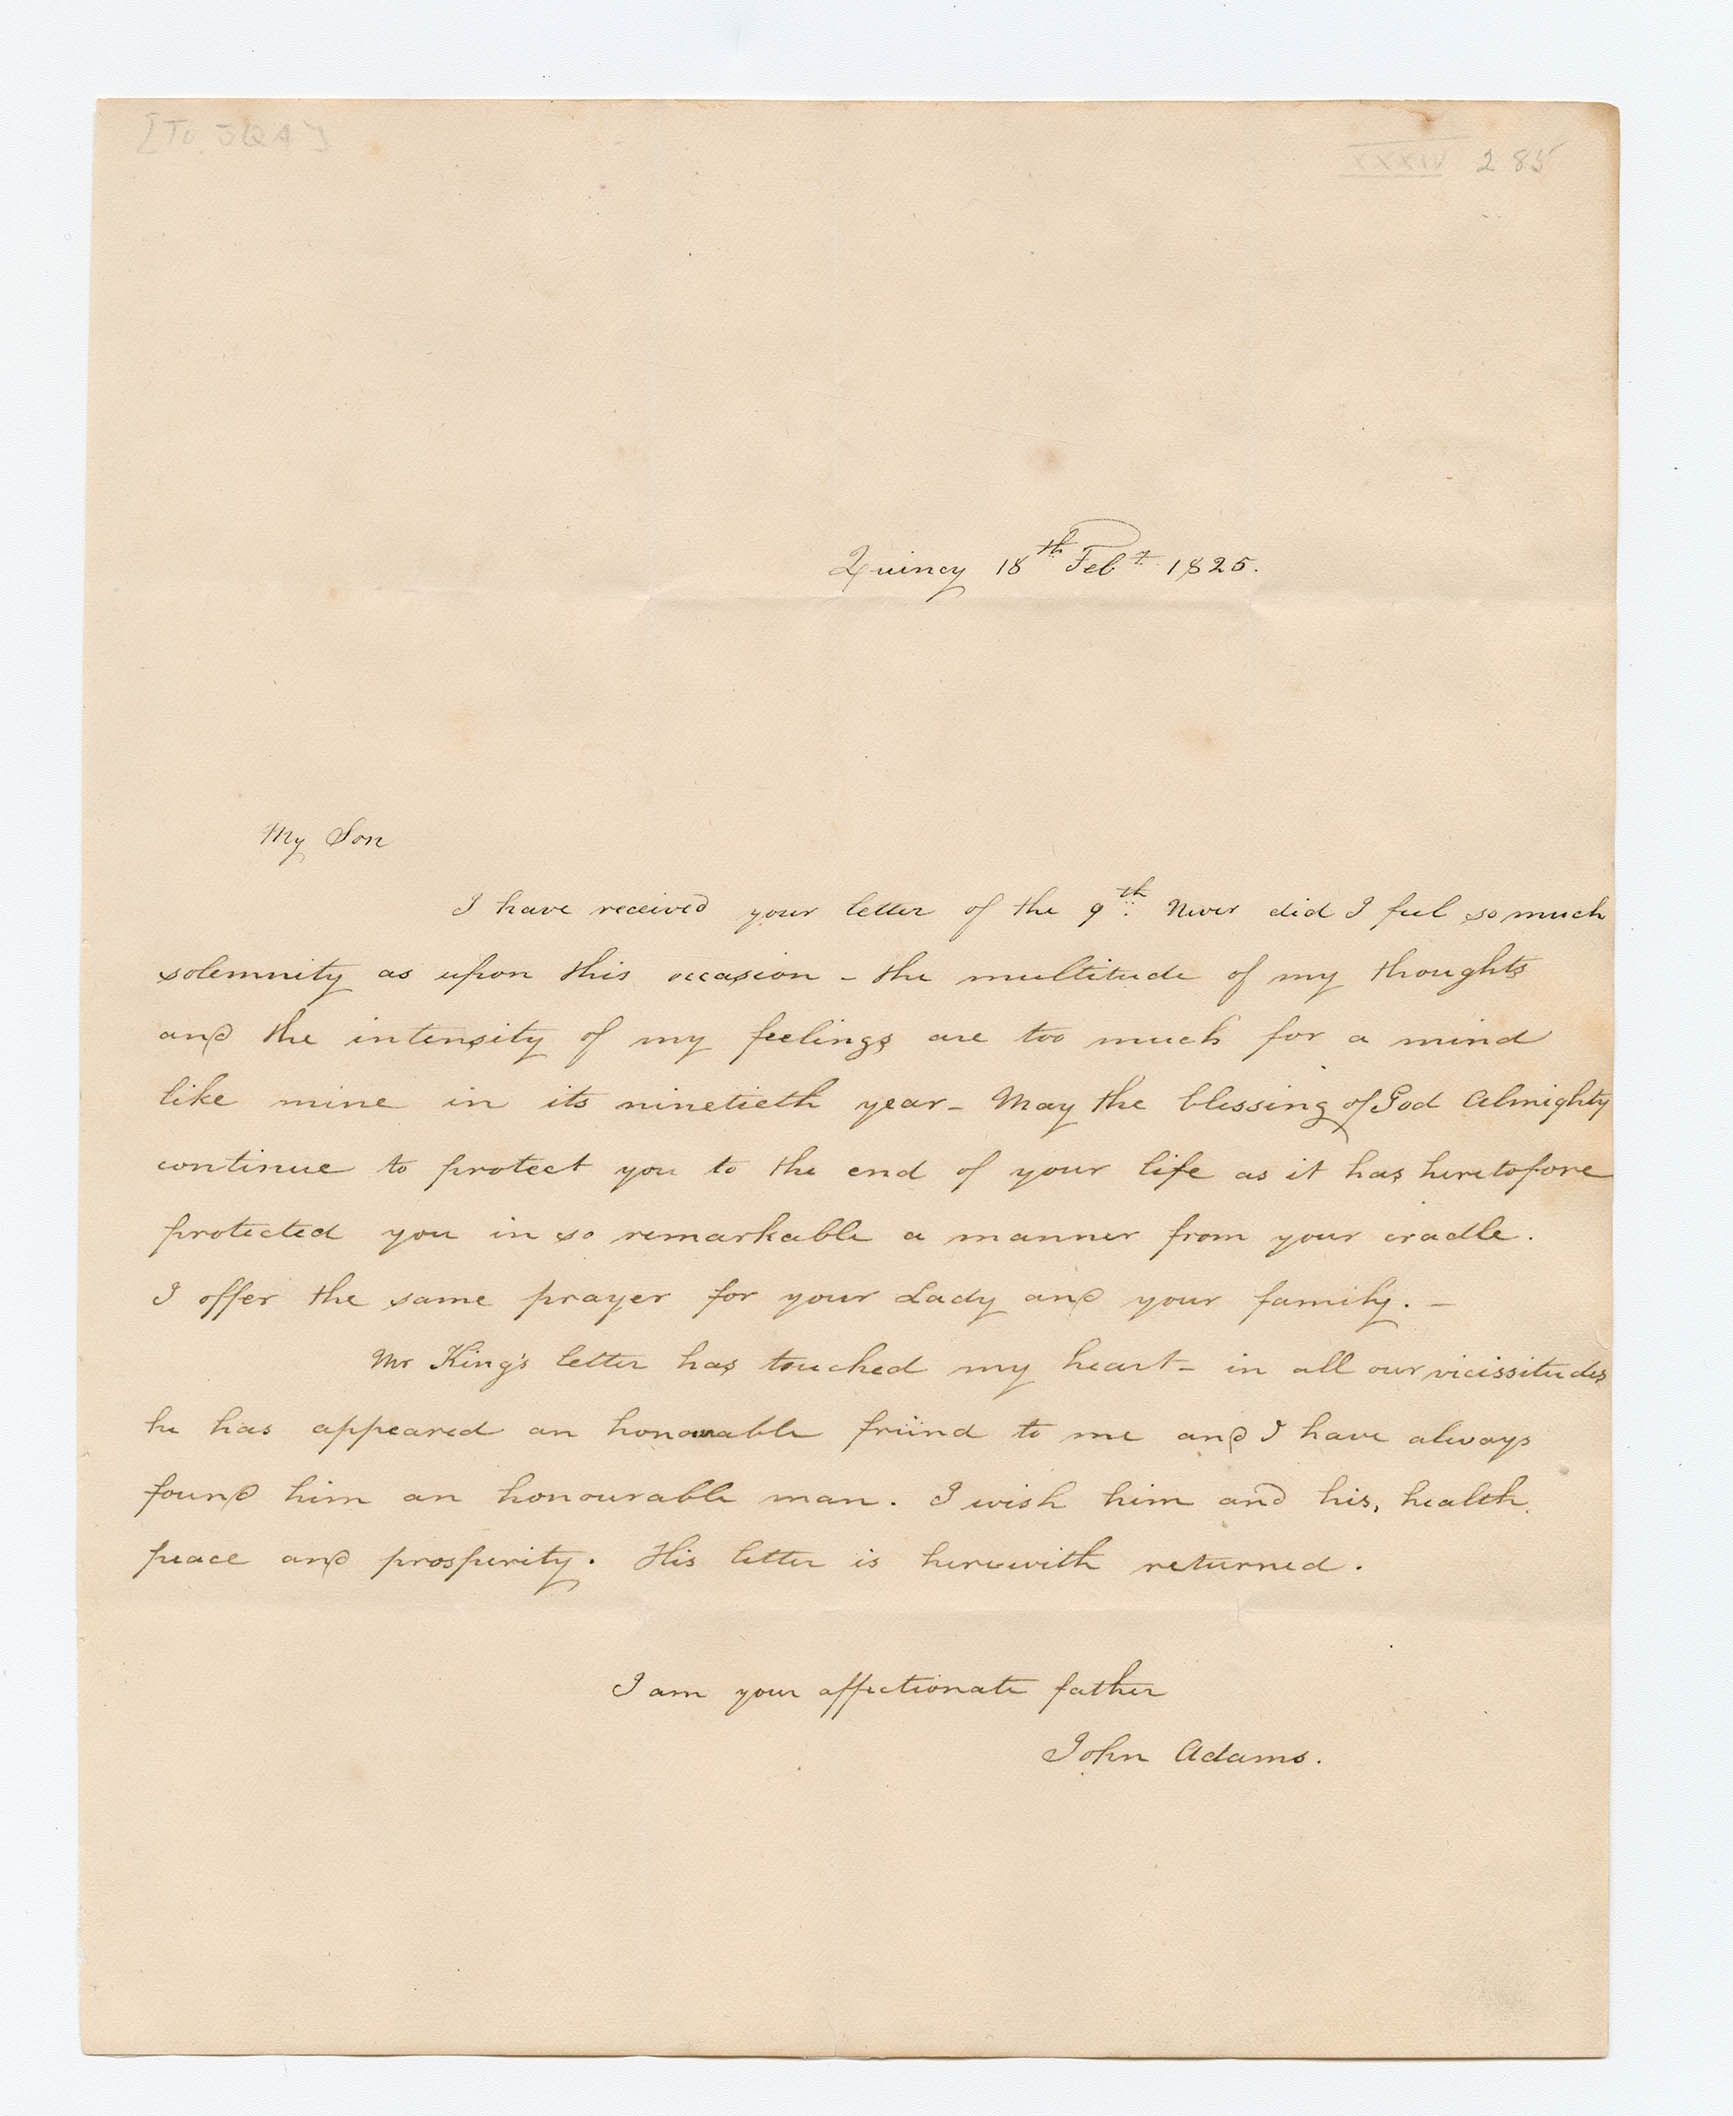 [To JQA]
XXXIV 285
Quincy 18th Feby 1825.
My Son
I have received your letter of the 9th. Never did I feel so much
solemnity as upon this occasion - the multitude of my thoughts
and the intensity of my feelings are too much for a mind
like mine in its ninetieth year - May the blessing of God Almighty
continue to protect you to the end of your life as it has heretofore
protected you in so remarkable a manner from your cradle.
I offer the same prayer for your Lady and your family. -
Mr King's letter has touched my heart - in all our vicissitudes
he has appeared an honourable friend to me and I have always
found him an honourable man. I wish him and his, health
peace and prosperity. His letter is herewith returned.
I am your affectionate father
John Adams.